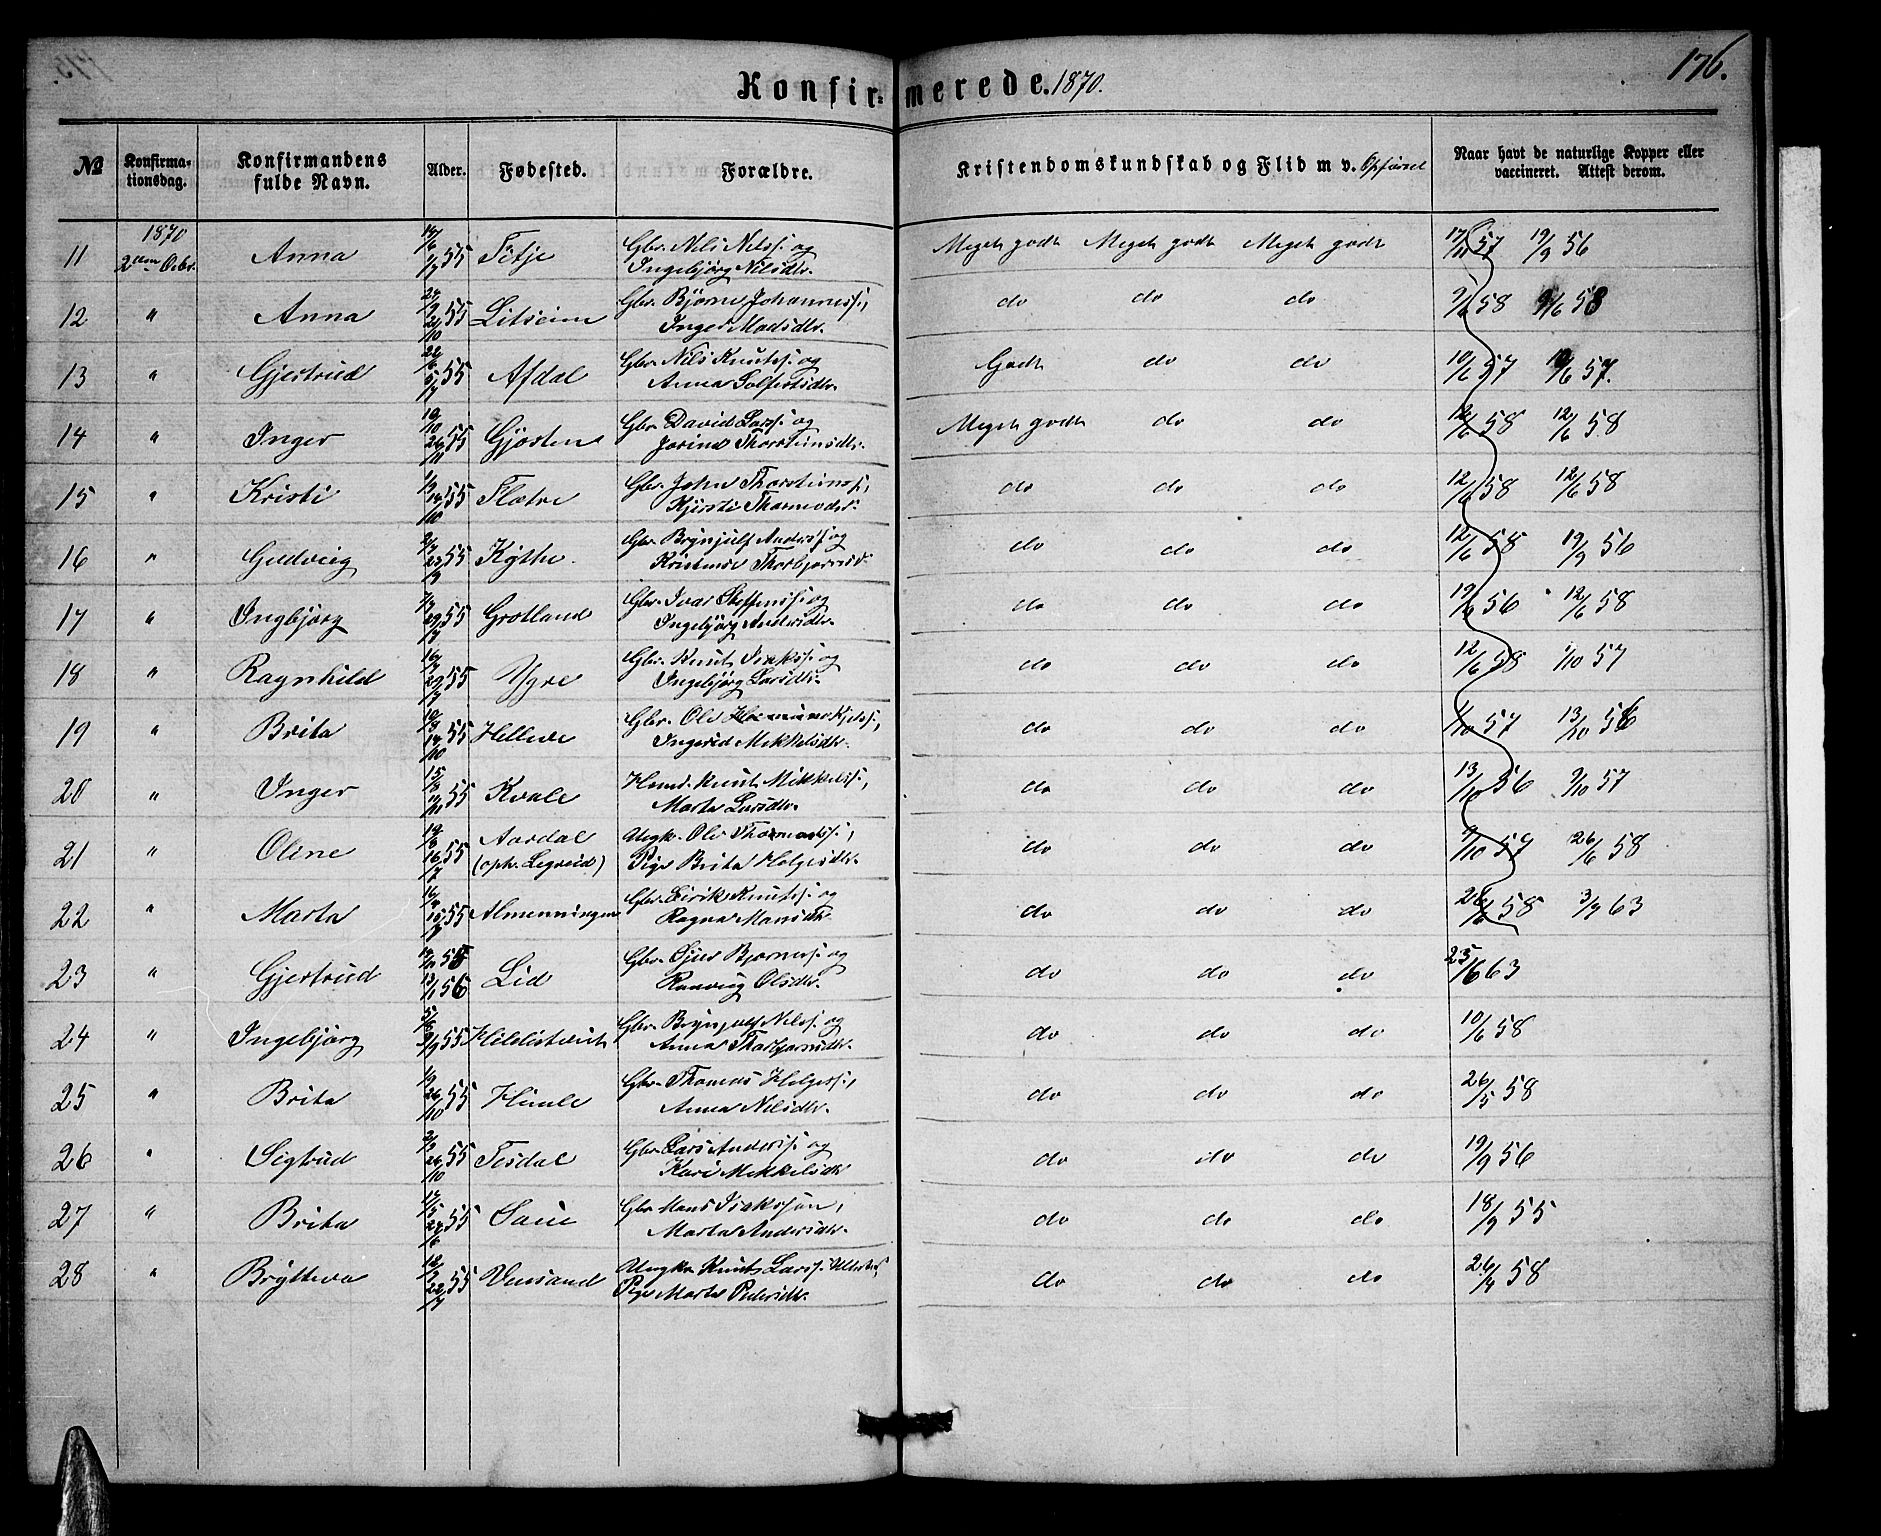 Konfirmerede. 1870.
176.
№ Konfirmationsdag. Konfirmandens fulde Navn. Alder. Fødested. Forældre. Kristendomskundskab og Flid m v. Opførsel Naar havt de naturlige Kopper eller vaccineret. Attest derom.
1870
11 2den Octbr. Anna 55 Gbr. Nils Nilss. og Ingebjørg Nilsdtr. Meget godt Meget godt Meget godt 57 19/9 56
12 " Anna 55 Litseim Gbr. Bjørne Johanness., Inger Madsdtr. do do do 9/6 58 9/6 58
13 " Gjertrud 55 Afdal Gbr. Nils Knuts. og Anna Solfestsdtr. Godt do do 10/6 57 10/6 57.
14 " Inger 10/10 26/11 55 Gjosten Gbr. David Larss. og Jorind Thorsteinsdtr. Meget godt do do 12/6 58 12/6 58
15 " Kristi 55 Flatre Gbr. John Thorsteinss., Kjersti Thormodsdr. do do do 12/6 58 12/6 58
16 " Gudveig 55 Kythe. Gbr. Brynjulf Anderss. og Kristense Thorbjørnsd. do do do 12/6 58 19/9 56
17 " Ingbjørg 55 Grotland Gbr. Ivar Steffenss. og Ingebjørg Andersdtr. do do do 19/9 56 12/6 58
18 " Ragnhild 55 Ygre Gbr. Knut Isakss. og Ingebjørg Larsdtr. do do do 12/6 58 1/10 57
19 " Brita 55 Helleve Gbr. Ole Ingerid Mikkelsdtr. do do do 1/10 57 13/10 56
20 " Inger 55 Kvale Huusm. Knut Mikkelss., Marta Larsdtr. do do do 13/10 56 9/10 57
21 " Oline 55 Aardal (oph. Legreid) Ungk. Ole Thormodss., Pige Brita Helgesdtr. do do do 9/10 57 26/6 58
22 " Marta 55 Almenningen Gbr. Eirik Knutss. og Ragna Mansdtr. do do do 26/6 58 3/9 63
23 " Gjertrud 55 13/1 56 Lid Gbr. Sjur Bjørness. og Ranveig Olsdtr. do do do 25/6 63
24 " Ingebjørg 55 Hildistveit Gbr. Brynjulf Nilss. og Anna Thorbjørnsdtr. do do do 10/6 58
25 " Brita 26/10 55 Himle Gbr. Thomas Helgess., Anna Nilsdtr. do do do 26/5 58
26 " Sigtrud 26/10 55 Tesdal Gbr. Lars Anderss. og Kari Mikkelsdtr do do do 19/9 56
27 " Brita 55 Saue Gbr. Mons Isaksson, Marta Andersdtr. do do do 18/9 55
28 " Brytteva 55 Vinsand Ungkr. Knut Larss. Pige Marta Pedersdtr. do do do 26/9 58